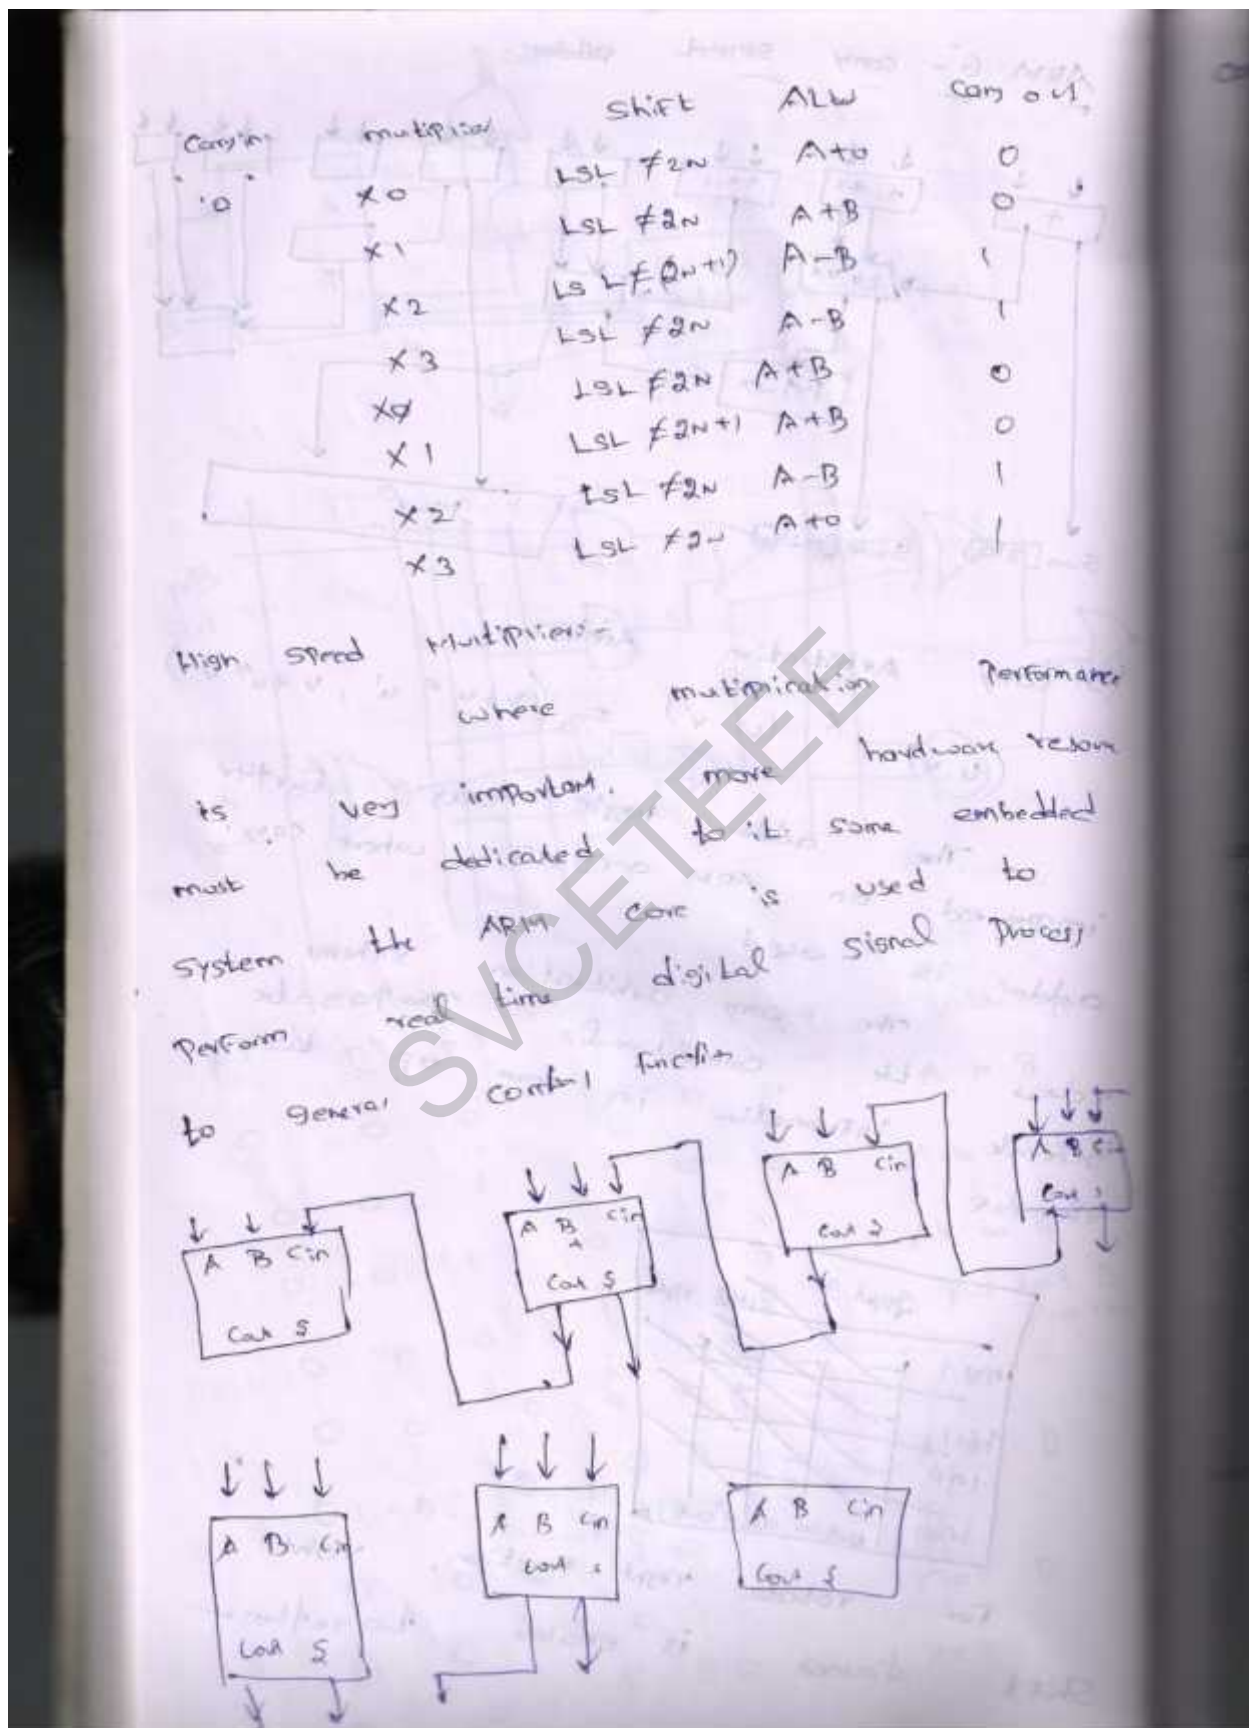 Carry in multiplier Shift ALU Carry out
0 x 0 LSL #2N A+0 0
x 1 LSL #2N A+B 0
x 2 LSL #(2N+1) A-B 1
x 3 LSL #2N A-B 1
x 0 LSL #2N A+B 0
x 1 LSL #2N+1 A+B 0
x 2 LSL #2N A-B 1
x 3 LSL #2N A+0 1
High Speed Multiplier:-
where multiplication Performance
is very important. more hardware resour
must be dedicated to it. some embedded
System the ARM core is used to
Perform real time digital signal Process
to general control function
A B Cin
Cout S
A B Cin
Cout S
A B Cin
Cout S
A B Cin
Cout S
A B Cin
Cout S
A B Cin
Cout S
A B Cin
Cout S
SVCETEEE